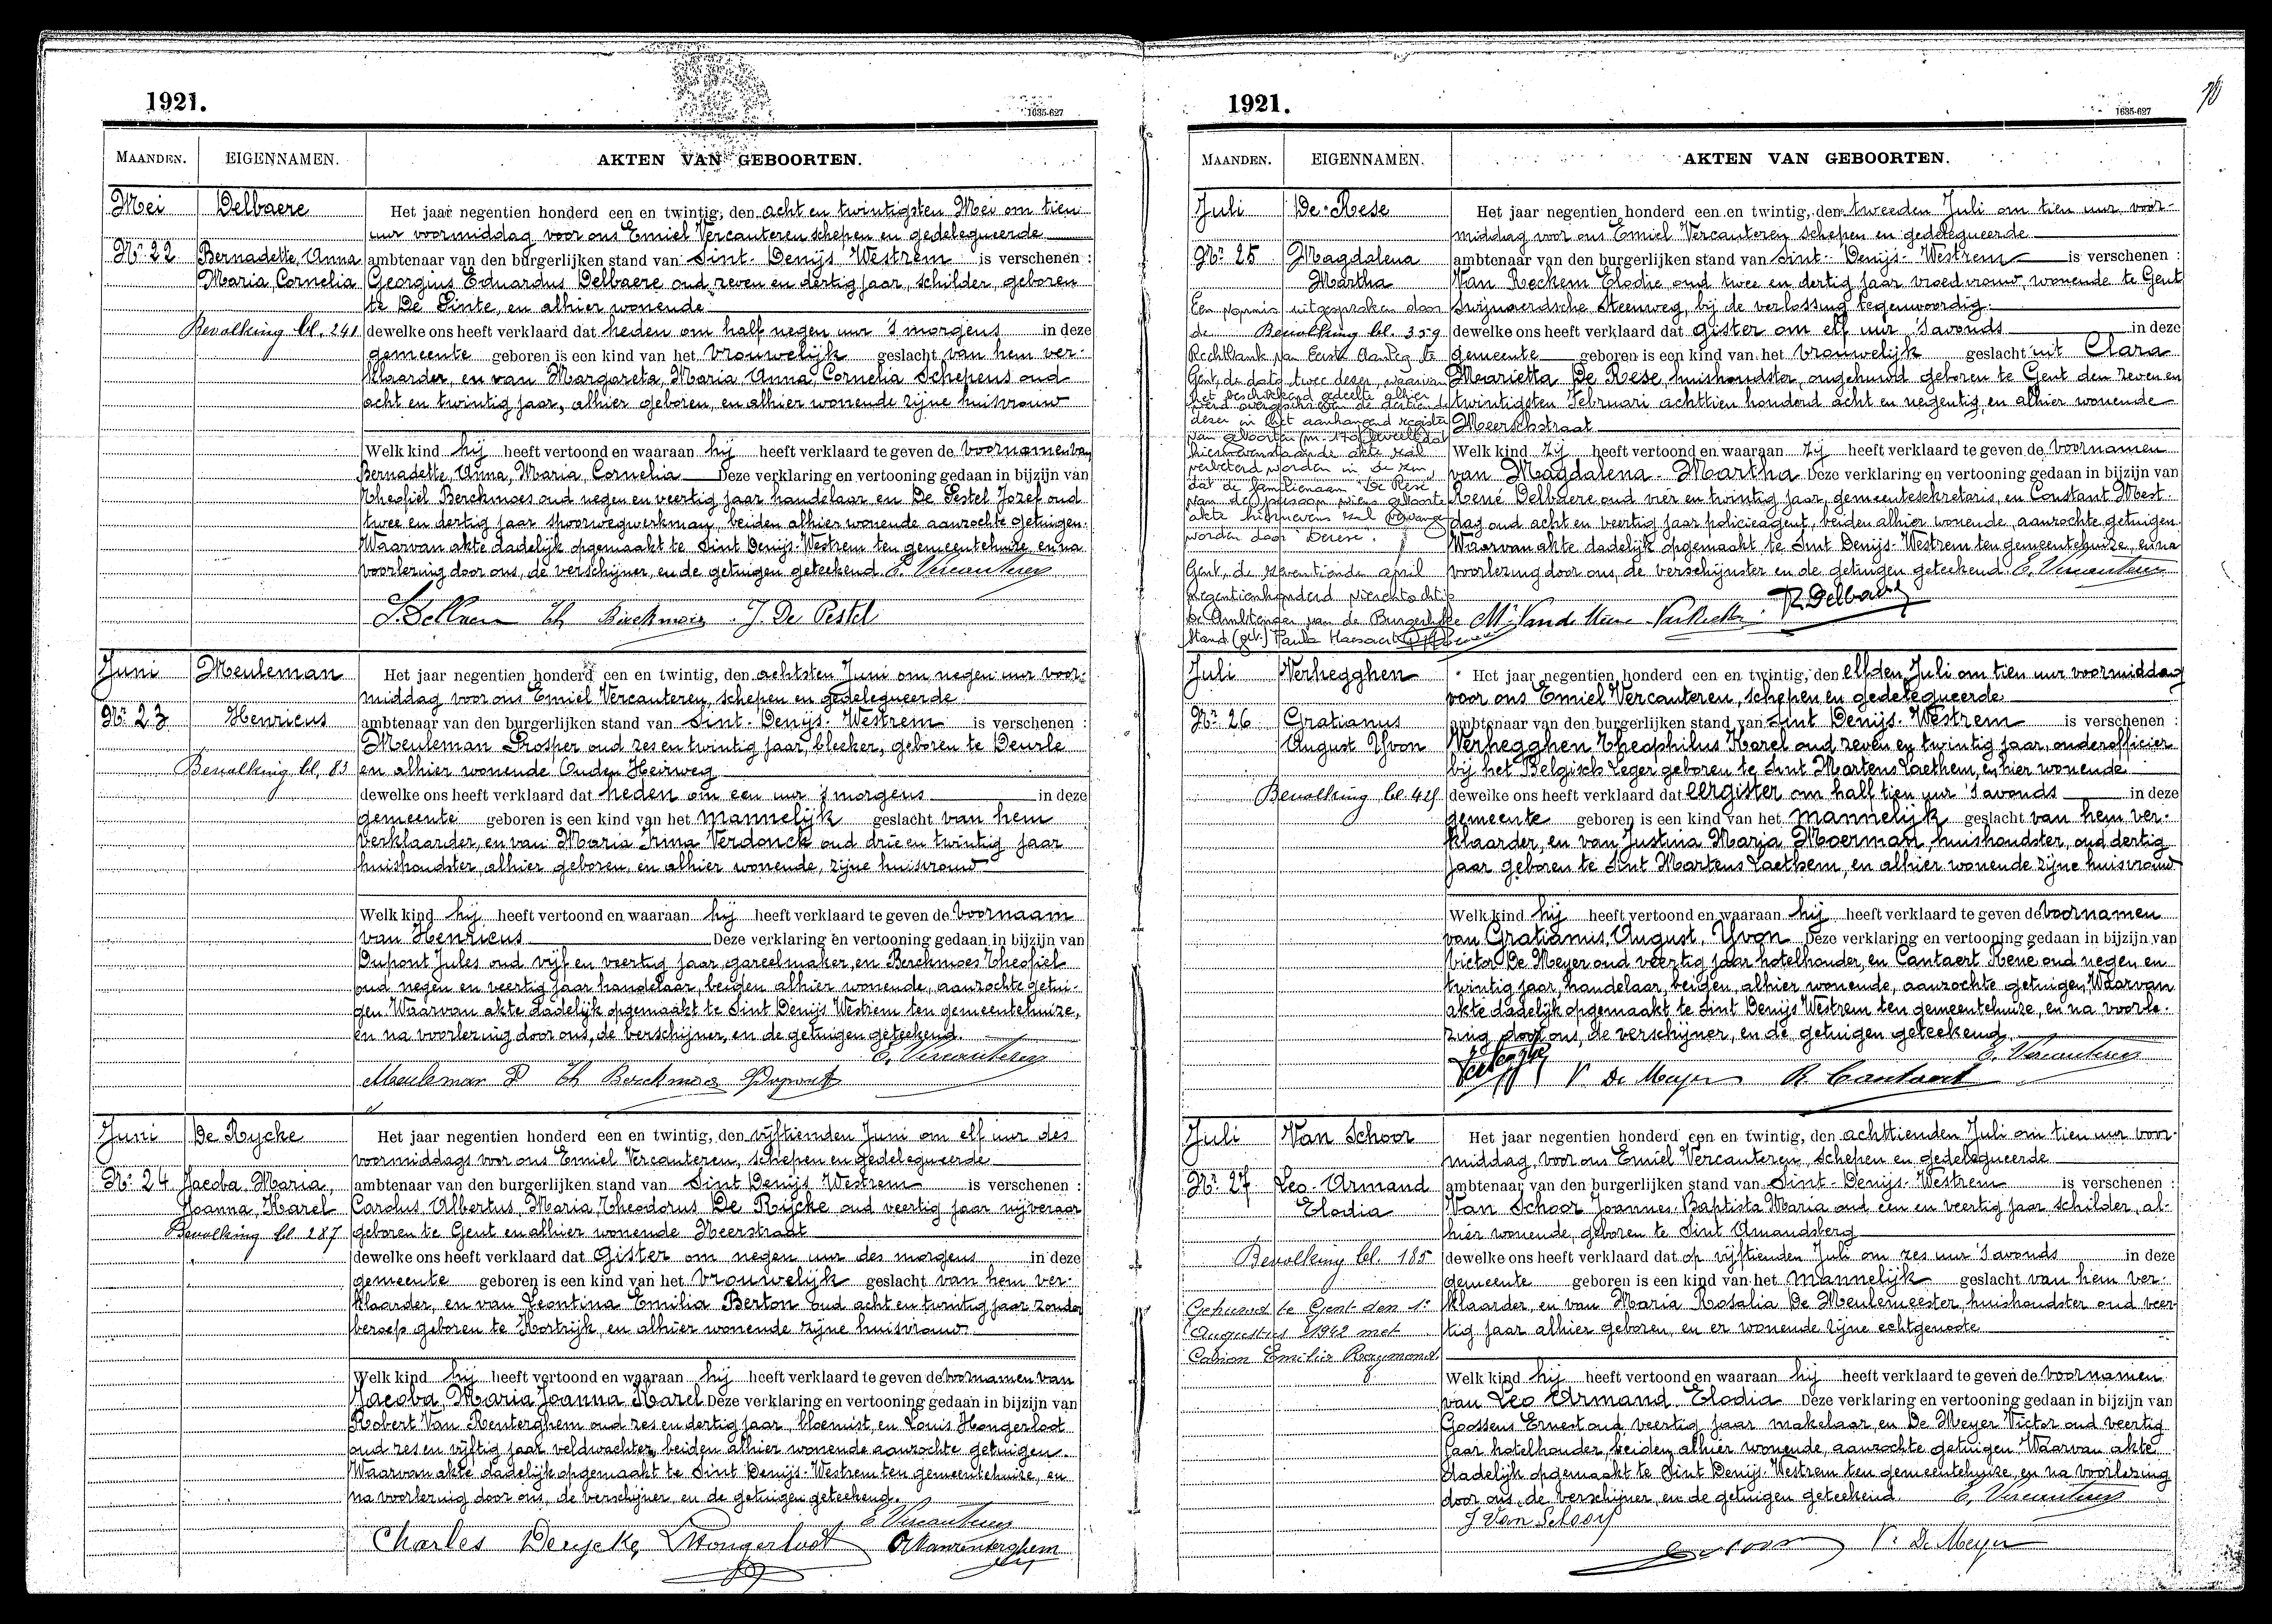 1921.
1635-627
MAANDEN.
EIGENNAMEN.
AKTEN VAN GEBOORTEN.
Mei
Delbaere
Nr. 22
Bernadette, Anna
Maria, Cornelia
Bevolking bl. 241
Het jaar negentien honderd een en twintig, den acht en twintigsten Mei om tien
uur voormiddag voor ons Emiel Vercauteren schepen en gedelegueerde
ambtenaar van den burgerlijken stand van Sint-Denijs Westrem is verschenen :
Georgius Eduardus Delbaere oud zeven en dertig jaar, schilder geboren
te De Pinte, en alhier wonende
dewelke ons heeft verklaard dat heden om half negen uur 's morgens in deze
gemeente geboren is een kind van het vrouwelijk geslacht van hem ver-
klaarder, en van Margareta, Maria Anna, Cornelia Schepens oud
acht en twintig jaar, alhier geboren, en alhier wonende zijne huisvrouw
Welk kind hij heeft vertoond en waaraan hij heeft verklaard te geven de voornamen van
Bernadette, Anna, Maria, Cornelia Deze verklaring en vertooning gedaan in bijzijn van
Theofiel Berckmoes oud negen en veertig jaar handelaar en De Pestel Jozef oud
twee en dertig jaar spoorwegwerkman, beiden alhier wonende aanzochte getuigen.
Waarvan akte dadelijk opgemaakt te Sint Denijs-Westrem ten gemeentehuize en na
voorlezing door ons, de verschijner, en de getuigen geteekend E. Vercauteren
Th Berckmoes J. De Pestel
Juni
Meuleman
Nr. 23
Henricus
Bevolking bl. 83
Het jaar negentien honderd een en twintig, den achtsten Juni om negen uur voor-
middag voor ons Emiel Vercauteren, schepen en gedelegueerde
ambtenaar van den burgerlijken stand van Sint-Denijs-Westrem is verschenen :
Meuleman Prosper oud zes en twintig jaar, bleeker, geboren te Deurle
en alhier wonende Ouden Heirweg
dewelke ons heeft verklaard dat heden om een uur 's morgens in deze
gemeente geboren is een kind van het mannelijk geslacht van hem
verklaarder, en van Maria Irma Verdonck oud drie en twintig jaar
huishoudster, alhier geboren, en alhier wonende, zijne huisvrouw
Welk kind hij heeft vertoond en waaraan hij heeft verklaard te geven de voornaam
van Henricus Deze verklaring en vertooning gedaan in bijzijn van
Dupont Jules oud vijf en veertig jaar, gareelmaker, en Berckmoes Theofiel
oud negen en veertig jaar handelaar, beiden alhier wonende, aanzochte getui-
gen. Waarvan akte dadelijk opgemaakt te Sint Denijs Westrem ten gemeentehuize,
en na voorlezing door ons, de verschijner, en de getuigen geteekend.
E. Vercauteren
Meuleman P Th Berckmoes Dupont
Juni
De Rycke
Nr. 24
Jacoba, Maria,
Joanna, Karel
Bevolking bl. 287
Het jaar negentien honderd een en twintig, den vijftienden Juni om elf uur des
voormiddags voor ons Emiel Vercauteren, schepen en gedelegueerde
ambtenaar van den burgerlijken stand van Sint Denijs Westrem is verschenen :
Carolus Albertus, Maria, Theodorus De Rijcke oud veertig jaar nijveraar
geboren te Gent en alhier wonende Heerstraat
dewelke ons heeft verklaard dat Gister om negen uur des morgens in deze
gemeente geboren is een kind van het vrouwelijk geslacht van hem ver-
klaarder, en van Leontina Emilia Berton oud acht en twintig jaar zonder
beroep geboren te Kortrijk, en alhier wonende zijne huisvrouw
Welk kind hij heeft vertoond en waaraan hij heeft verklaard te geven de voornamen van
Jacoba, Maria Joanna Karel Deze verklaring en vertooning gedaan in bijzijn van
Robert Van Renterghem oud zes en dertig jaar, bloemist, en Louis Hongerloot
oud zes en vijftig jaar veldwachter, beiden alhier wonende aanzochte getuigen.
Waarvan akte dadelijk opgemaakt te Sint Denijs-Westrem ten gemeentehuize, en
na voorlezing door ons, de verschijner, en de getuigen geteekend.
E Vercauteren
Charles Derycke L Hongerloot R Vanrenterghem
1921.
1635-627
MAANDEN.
EIGENNAMEN.
AKTEN VAN GEBOORTEN.
Juli
De Rese
Nr. 25
Magdalena
Martha
Een vonnis uitgesproken door
de
Bevolking bl. 359
Rechtbank van Eerste Aanleg te
Gent, de dato twee dezer, waarvan
het beschikkend gedeelte alhier
werd overgeschreven de dertiende
dezer in het aanhangend register
van geboorten (nr. 170) beveelt dat
hiernevenstaande akte zal
verbeterd worden in de zin,
dat de familienaam "De Rese"
van de persoon wiens geboorte
akte hiernevens zal vervangen
worden door "Derese".
Gent, de zeventiende april
negentienhonderd vierentachtig
De Ambtenaar van de Burgerlijke
Stand (get.) Paula Haesaert
Het jaar negentien honderd een en twintig, den tweeden Juli om tien uur voor-
middag voor ons Emiel Vercauteren schepen en gedelegueerde
ambtenaar van den burgerlijken stand van Sint-Denijs-Westrem is verschenen :
Van Reckem Elodie oud twee en dertig jaar vroedvrouw, wonende te Gent
Swijnaerdsche steenweg, bij de verlossing tegenwoordig
dewelke ons heeft verklaard dat gister om elf uur 's avonds in deze
gemeente geboren is een kind van het vrouwelijk geslacht uit Clara
Marietta De Rese, huishoudster, ongehuwd geboren te Gent den zeven en
twintigsten Februari achttien honderd acht en negentig, en alhier wonende
Meerschstraat
Welk kind zij heeft vertoond en waaraan zij heeft verklaard te geven de voornamen
van Magdalena-Martha Deze verklaring en vertooning gedaan in bijzijn van
René Delbaere oud vier en twintig jaar, gemeentesekretaris, en Constant Mest-
dag oud acht en veertig jaar policieagent, beiden alhier wonende, aanzochte getuigen.
Waarvan akte dadelijk opgemaakt te Sint Denijs-Westrem ten gemeentehuize, en na
voorlezing door ons, de verschijnster en de getuigen geteekend. E. Vercauteren
R Delbaere
Juli
Verhegghen
Nr. 26
Gratianus
August Yvon
Bevolking bl. 425
Het jaar negentien honderd een en twintig, den elfden Juli om tien uur voormiddag
voor ons Emiel Vercauteren, schepen en gedelegueerde
ambtenaar van den burgerlijken stand van Sint Denijs-Westrem is verschenen :
Verhegghen Theophilus Karel oud zeven en twintig jaar, onderofficier
bij het Belgisch Leger geboren te Sint Martens Laethem, en hier wonende
dewelke ons heeft verklaard dat eergister om half tien uur 's avonds in deze
gemeente geboren is een kind van het mannelijk geslacht van hem ver-
klaarder, en van Justina Maria Moerman, huishoudster, oud dertig
jaar geboren te Sint Martens Laethem, en alhier wonende zijne huisvrouw
Welk kind hij heeft vertoond en waaraan hij heeft verklaard te geven de voornamen
van Gratianus, August, Yvon Deze verklaring en vertooning gedaan in bijzijn van
Victor De Meyer oud veertig jaar hotelhouder, en Cantaert René oud negen en
twintig jaar, handelaar, beiden, alhier wonende, aanzochte getuigen, Waarvan
akte dadelijk opgemaakt te Sint Denijs Westrem ten gemeentehuize, en na voorle-
zing door ons, de verschijner, en de getuigen geteekend.
E. Vercauteren
V De Meyer R. Cantaert
Juli
Van Schoor
Nr. 27
Leo-Armand
Elodia
Bevolking bl. 185
Gehuwd te Gent den 1e
Augustus 1942 met
Emilie Raymond.
Het jaar negentien honderd een en twintig, den achttienden Juli om tien uur voor-
middag, voor ons Emiel Vercauteren, schepen en gedelegueerde
ambtenaar van den burgerlijken stand van Sint-Denijs-Westrem is verschenen :
Van Schoor Joannes-Baptista Maria oud een en veertig jaar schilder, al-
hier wonende, geboren te Sint Amandsberg
dewelke ons heeft verklaard dat op vijftienden Juli om zes uur 's avonds in deze
gemeente geboren is een kind van het mannelijk geslacht van hem ver-
klaarder, en van Maria Rosalia De Meulemeester, huishoudster oud veer-
tig jaar alhier geboren, en er wonende zijne echtgenoote
Welk kind hij heeft vertoond en waaraan hij heeft verklaard te geven de voornamen
van Leo Armand Elodia Deze verklaring en vertooning gedaan in bijzijn van
Goossens Ernest oud veertig jaar makelaar, en De Meyer Victor oud veertig
jaar hotelhouder, beiden, alhier wonende, aanzochte getuigen. Waarvan akte
dadelijk opgemaakt te Sint Denijs-Westrem ten gemeentehuize, en na voorlezing
door ons, de verschijner, en de getuigen geteekend. E. Vercauteren
J Van Schoor
V. De Meyer